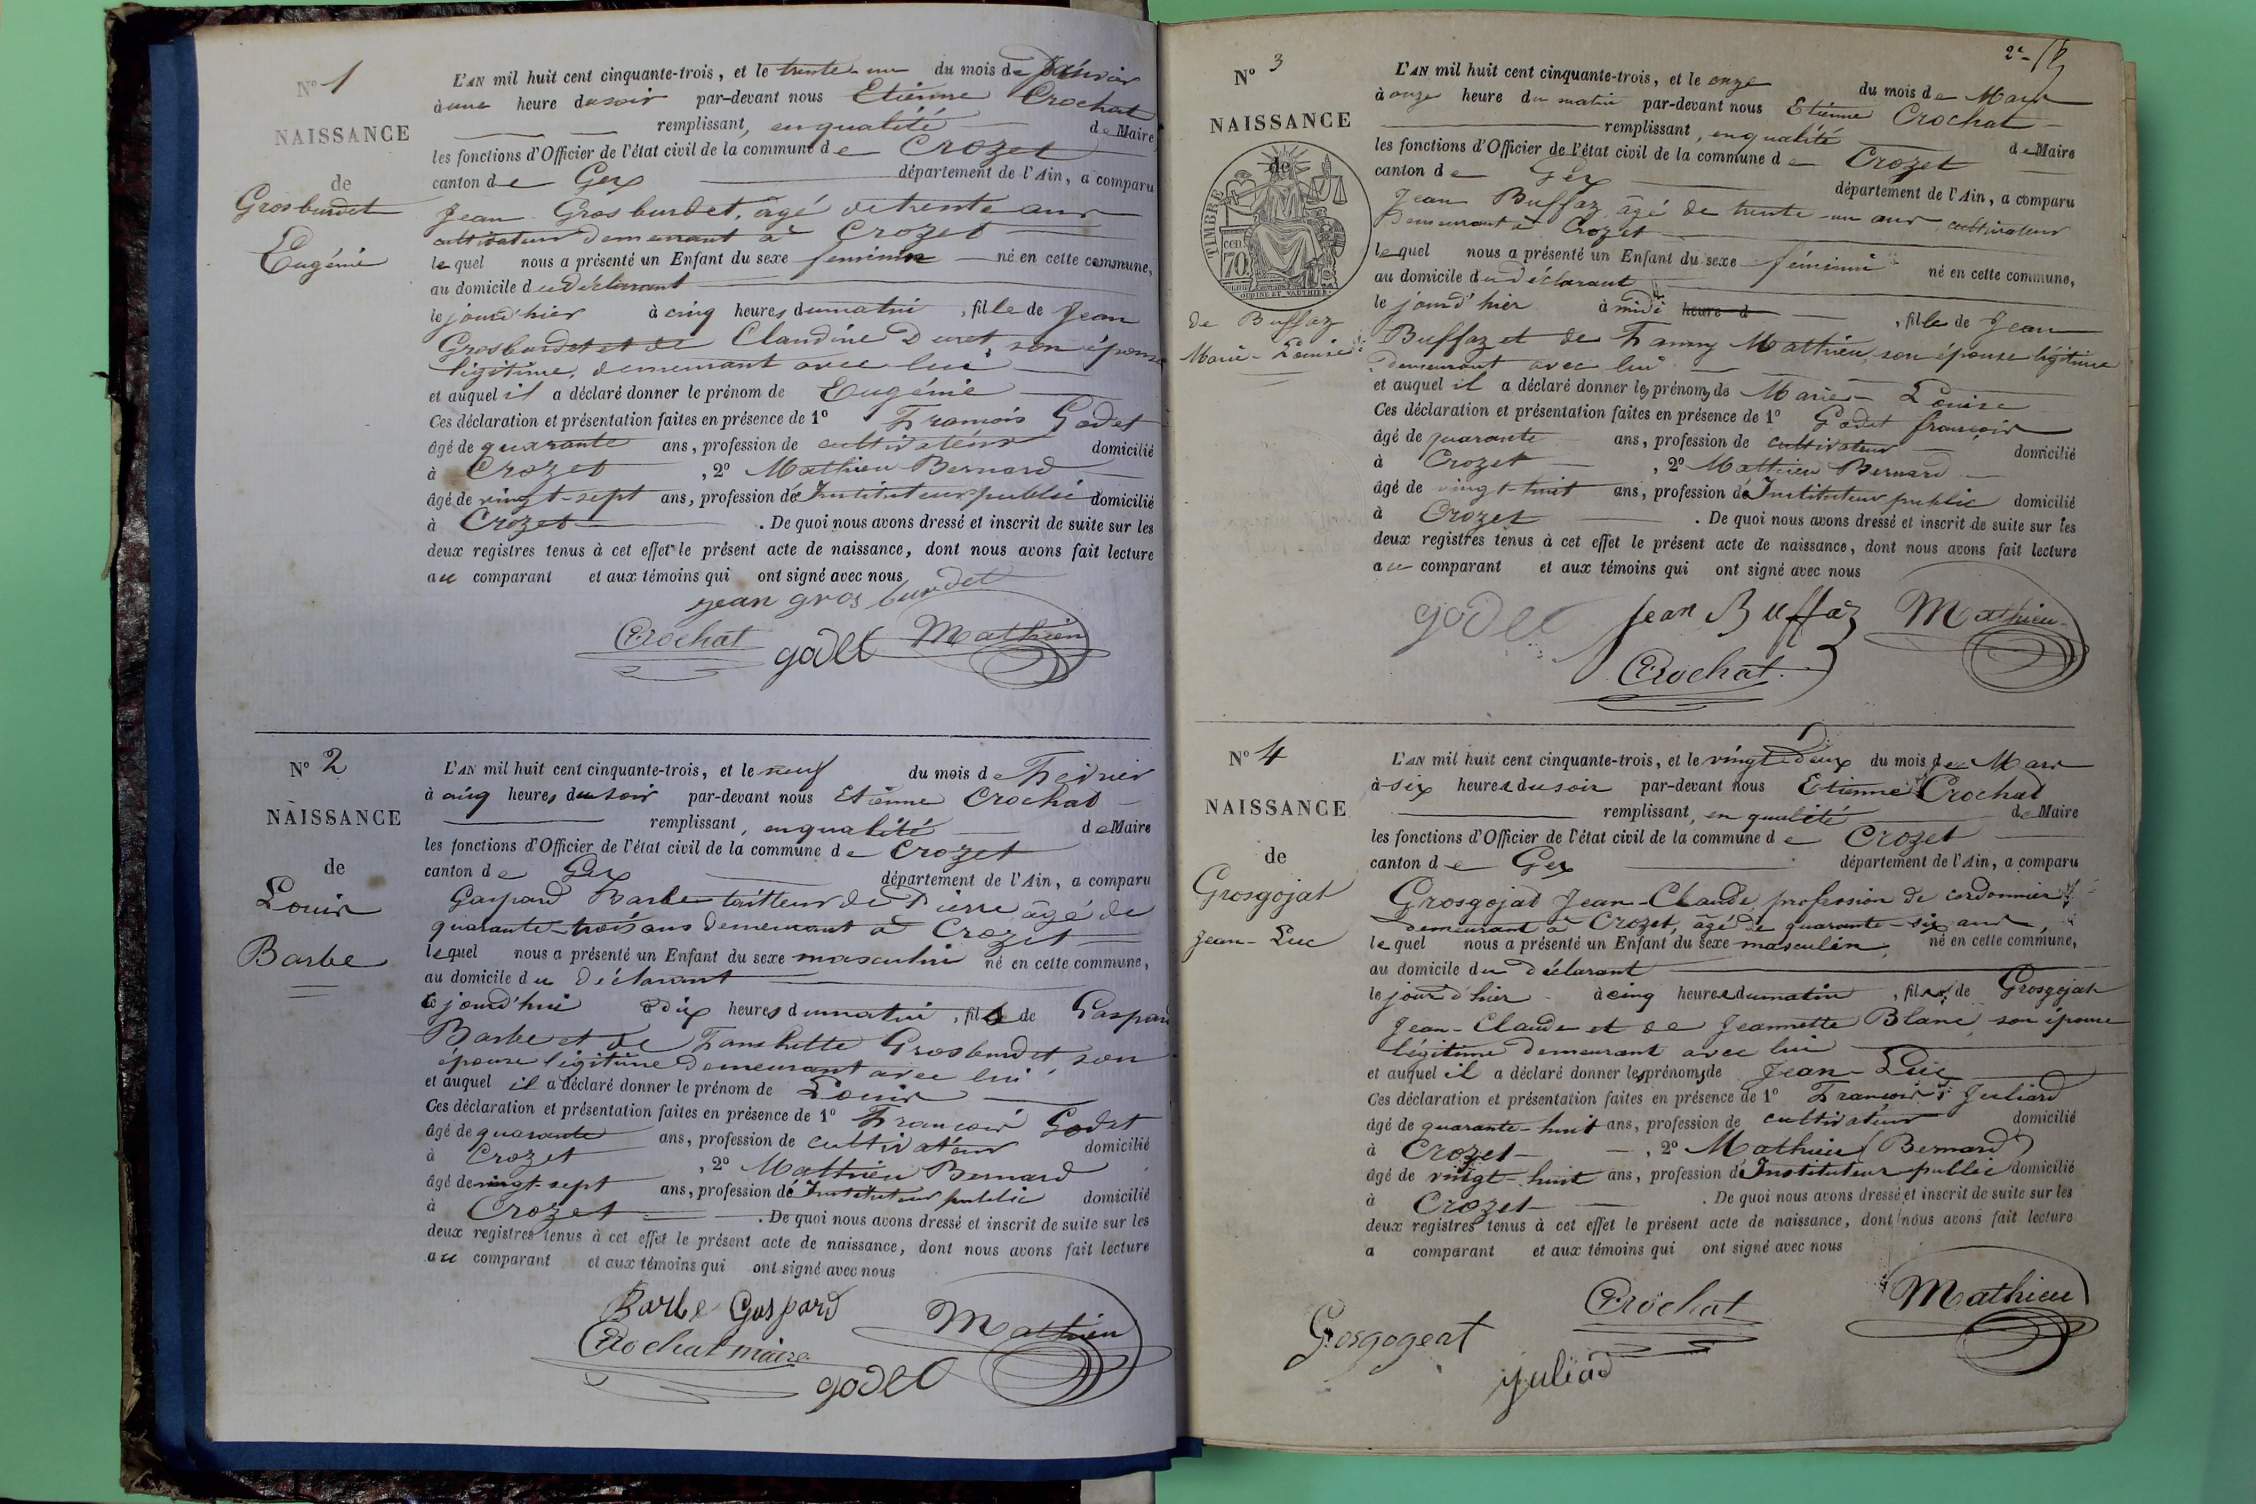 N° 1
NAISSANCE
de
Grosburdet
Eugénie
L'AN mil huit cent cinquante-trois, et le trente-un du mois de Janvier
à une heure du soir par-devant nous Etienne Crochat
remplissant, en qualité de Maire
les fonctions d'Officier de l'état civil de la commune de Crozet
canton de Gex département de l'Ain, a comparu
Jean Grosburdet, âgé de trente ans
cultivateur demeurant à Crozet
lequel nous a présenté un Enfant du sexe féminin né en cette commune,
au domicile du déclarant
le jourd'hier à cinq heures du matin, fille de Jean
Grosburdet et de Claudine Duret, son épouse
légitime, demeurant avec lui
et auquel il a déclaré donner le prénom de Eugénie
Ces déclaration et présentation faites en présence de 1° François Godet
âgé de quarante ans, profession de cultivateur domicilié
à Crozet, 2° Mathieu Bernard
âgé de vingt-sept ans, profession d'Instituteur public domicilié
à Crozet. De quoi nous avons dressé et inscrit de suite sur les
deux registres tenus à cet effet le présent acte de naissance, dont nous avons fait lecture
au comparant et aux témoins qui ont signé avec nous
jean gros burdet
Crochat godet Mathieu
N° 2
NAISSANCE
de
Louis
Barbe
L'AN mil huit cent cinquante-trois, et le neuf du mois de Février
à cinq heures du soir par-devant nous Etienne Crochat
remplissant, en qualité de Maire
les fonctions d'Officier de l'état civil de la commune de Crozet
canton de Gex département de l'Ain, a comparu
Gaspard Barbe tailleur de Pierre âgé de
quarante-trois ans demeurant à Crozet
lequel nous a présenté un Enfant du sexe masculin né en cette commune,
au domicile du déclarant
le jourd'hui à dix heures du matin, fils de Gaspard
Barbe et de Fanchette Grosburdet, son
épouse légitime demeurant avec lui
et auquel il a déclaré donner le prénom de Louis
Ces déclaration et présentation faites en présence de 1° François Godet
âgé de quarante ans, profession de cultivateur domicilié
à Crozet, 2° Mathieu Bernard
âgé de vingt-sept ans, profession d'Instituteur public domicilié
à Crozet. De quoi nous avons dressé et inscrit de suite sur les
deux registres tenus à cet effet le présent acte de naissance, dont nous avons fait lecture
au comparant et aux témoins qui ont signé avec nous
Barbe Gaspard
Crochat maire Mathieu
godet
2e
N° 3
NAISSANCE
de
TIMBRE
70
de Buffaz
Marie-Louise
L'AN mil huit cent cinquante-trois, et le onze du mois de Mars
à onze heure du matin par-devant nous Etienne Crochat
remplissant, en qualité de Maire
les fonctions d'Officier de l'état civil de la commune de Crozet
canton de Gex département de l'Ain, a comparu
Jean Buffaz, âgé de trente-un ans, cultivateur
demeurant à Crozet
lequel nous a présenté un Enfant du sexe féminin né en cette commune,
au domicile du déclarant
le jourd'hier à midi heure d, fille de Jean
Buffaz et de Fanny Mathieu, son épouse légitime
demeurant avec lui
et auquel il a déclaré donner les prénoms de Marie-Louise
Ces déclaration et présentation faites en présence de 1° Godet françois
âgé de quarante ans, profession de cultivateur domicilié
à Crozet, 2° Mathieu Bernard
âgé de vingt-huit ans, profession d'Instituteur public domicilié
à Crozet. De quoi nous avons dressé et inscrit de suite sur les
deux registres tenus à cet effet le présent acte de naissance, dont nous avons fait lecture
au comparant et aux témoins qui ont signé avec nous
godet jean Buffaz Mathieu
Crochat
N° 4
NAISSANCE
de
Grosgojat
Jean-Luc
L'AN mil huit cent cinquante-trois, et le vingt-deux du mois de Mars
à six heures du soir par-devant nous Etienne Crochat
remplissant, en qualité de Maire
les fonctions d'Officier de l'état civil de la commune de Crozet
canton de Gex département de l'Ain, a comparu
Grosgojat Jean-Claude, profession de cordonnier
demeurant à Crozet, âgé de quarante-six ans,
lequel nous a présenté un Enfant du sexe masculin, né en cette commune,
au domicile du déclarant
le jour d'hier à cinq heures du matin, fils de Grosgojat
Jean-Claude et de Jeannette Blanc, son épouse
légitime demeurant avec lui
et auquel il a déclaré donner les prénoms de Jean-Luc
Ces déclaration et présentation faites en présence de 1° François Juliard
âgé de quarante-huit ans, profession de cultivateur domicilié
à Crozet, 2° Mathieu (Bernard)
âgé de vingt-huit ans, profession d'Instituteur public domicilié
à Crozet. De quoi nous avons dressé et inscrit de suite sur les
deux registres tenus à cet effet le présent acte de naissance, dont nous avons fait lecture
a comparant et aux témoins qui ont signé avec nous
Grosgogeat Crochat Mathieu
juliad